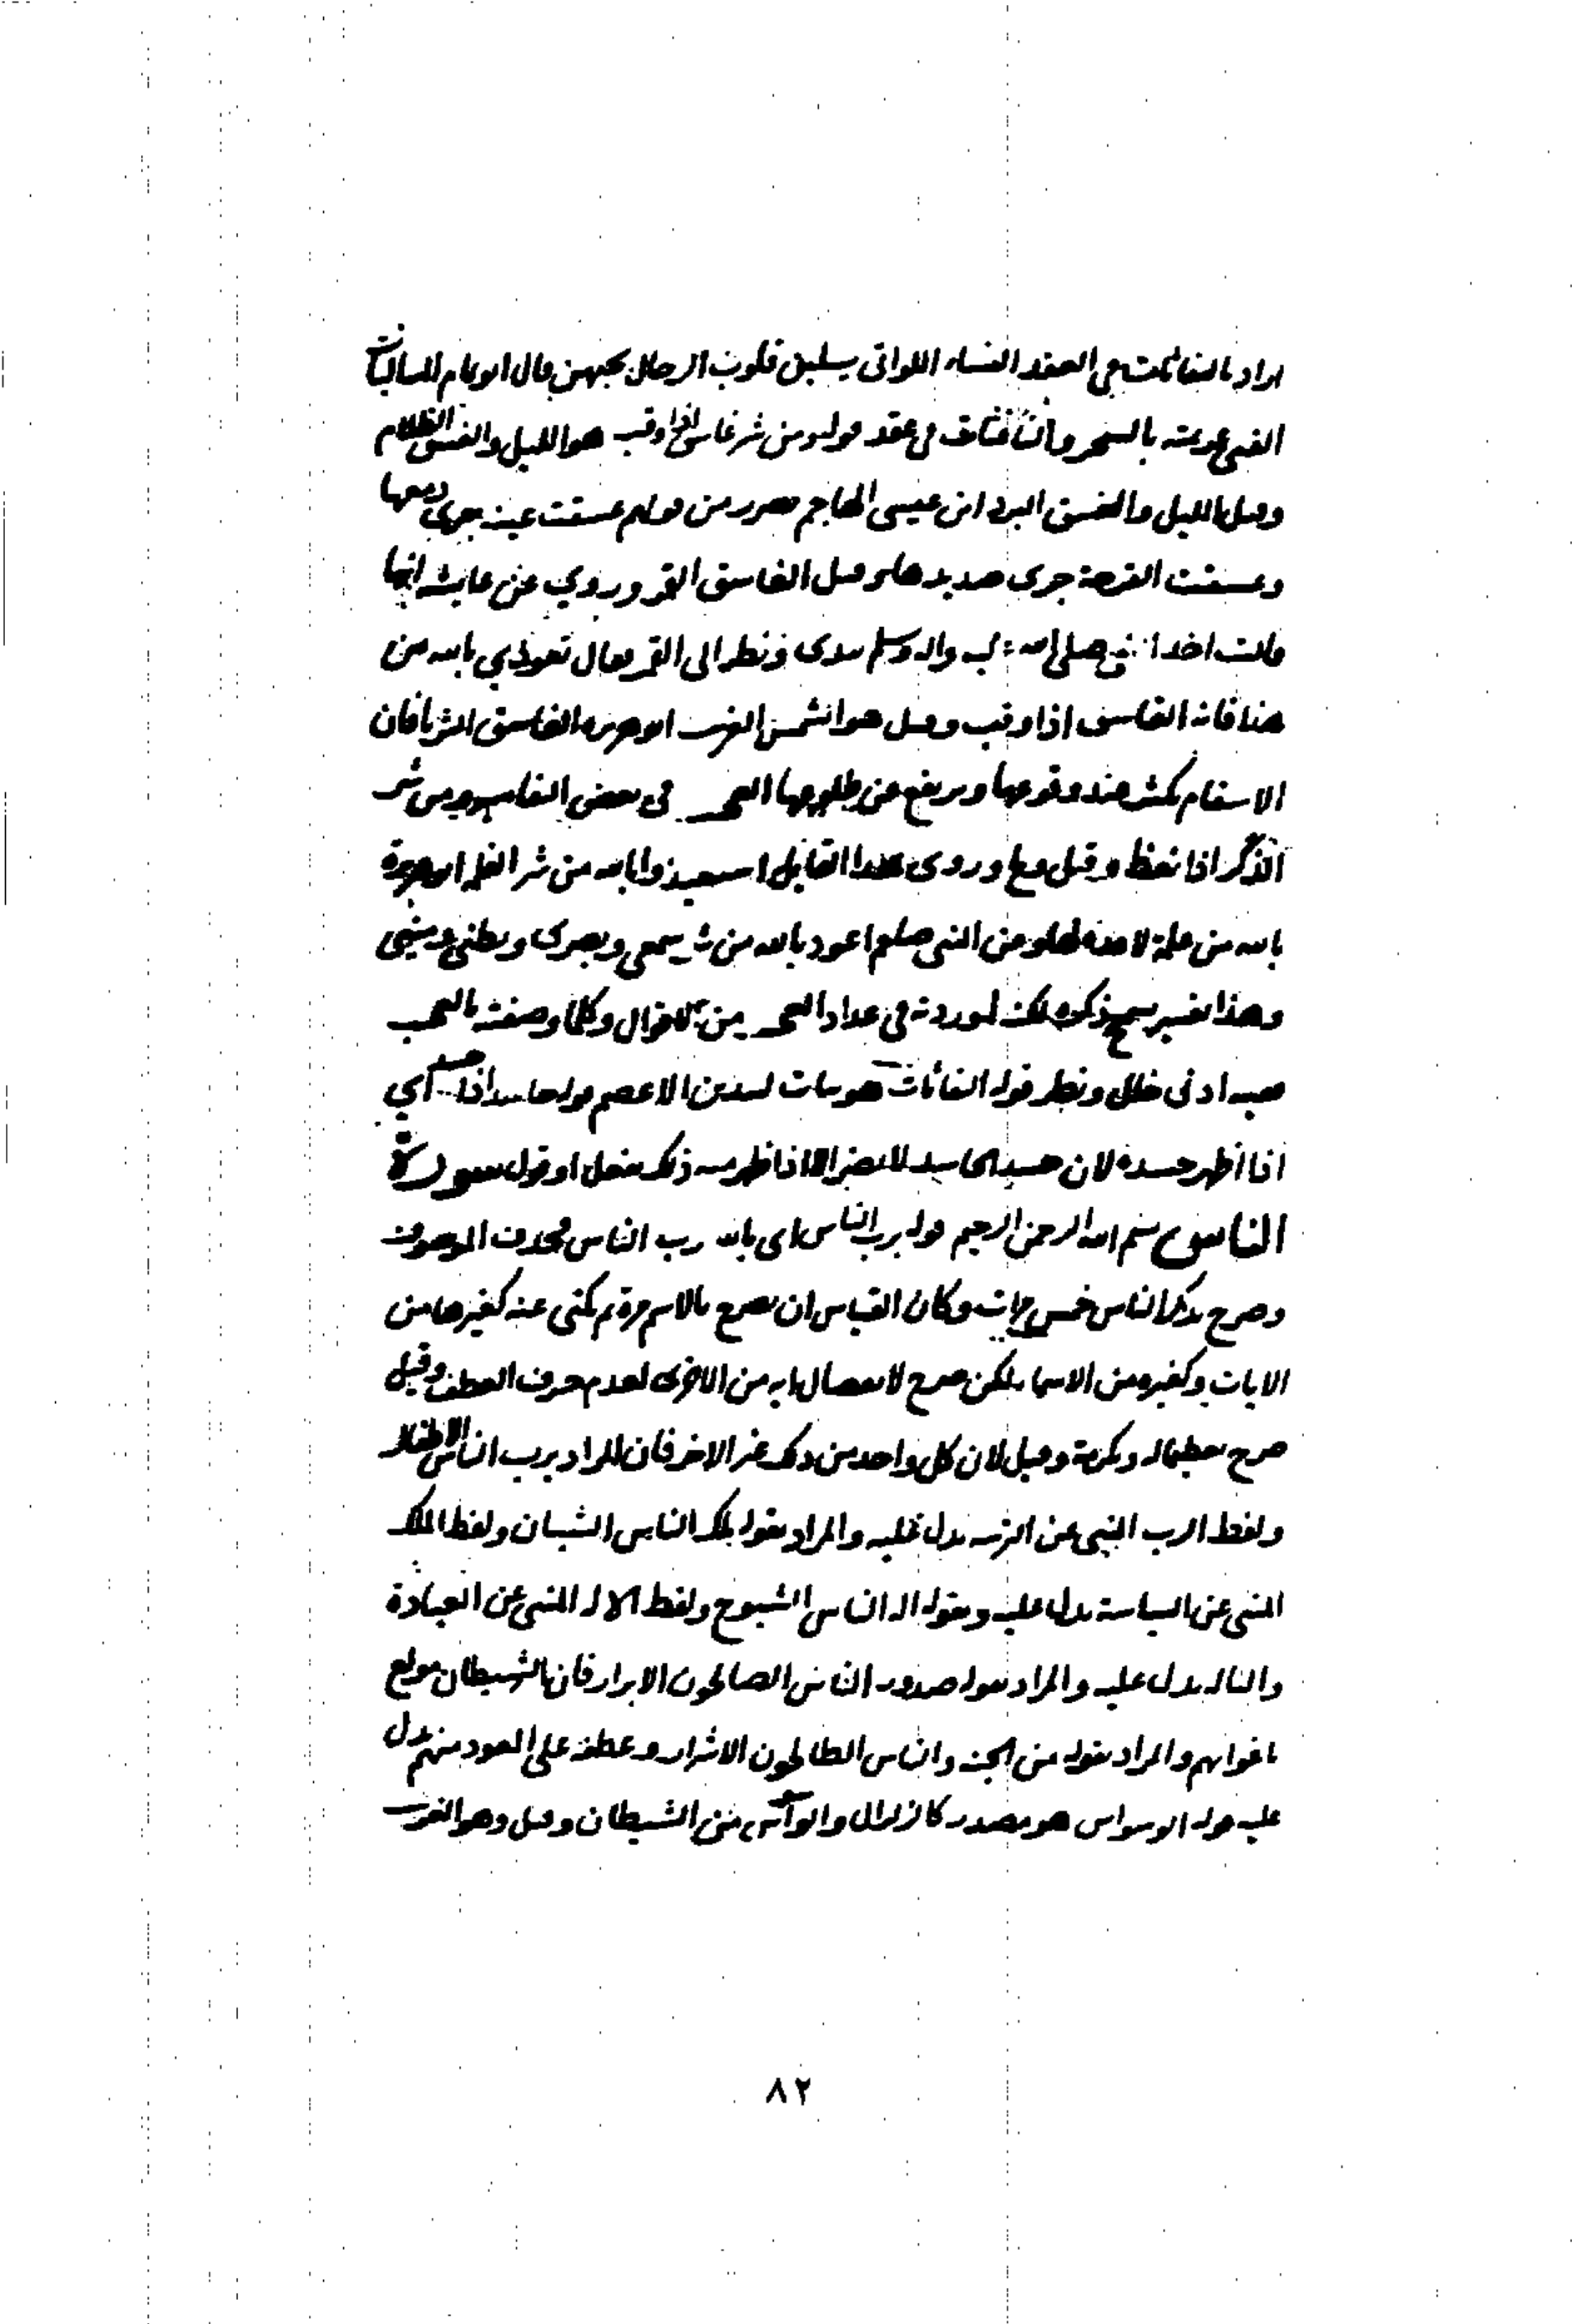 المراد بالنفاثات في العقد النساء اللواتي يسلبن قلوب الرجال بحبهن قال ابو تمام السالبات
الفتى عزيمته بالسحر والنافثات في عقد قوله ومن شر غاسق اذا وقب هو الليل والغسق الظلام
وقيل الليل والغسق البرد ابن عيسى الهاجم بضرر من قولهم غسقت عينه جرى دمعها
وغسقت القرحة جرى صديدها وقيل الغاسق القمر وروي عن عايشة انها
قالت اخذ النبي صلى الله عليه واله وسلم بيدي ونظر الى القمر فقال تعوذي بالله من
هذا فانه الغاسق اذا وقب وقيل هو الشمس اذا غربت ابو هريرة الغاسق الثريا فان
الاسقام تكثر عند وقوعها وترتفع عن طلوعها العجب في بعض التفاسير ومن شر
الذكر اذا نعظ وقيل ولج وروى هذا القايل استعيذوا بالله من شر الغلمة
بالله من غلمة لا عدة لها وعن النبي صلعم اعوذ بالله من شر سمعي وبصري وبطني ومنيي
وهذا تفسير يسمج ذكره لكنه اوردته في عداد العجب من الاقوال وكلما وصفته بالعجب
ففيه ادنى خلل ونظر قوله النفاثات هو بنات لبيد بن الاعصم قوله حاسد اذا حسد اي
اذا اظهر حسده لان حسد الحاسد لا يضر الا اذا ظهر منه ذلك بفعل او قول سورة
الناس بسم الله الرحمن الرحيم قوله برب الناس اي بالله رب الناس فحذف الموصوف
وصرح بذكر الناس خمس مرات وكان القياس ان يصرح بالاسم مرة ثم يكنى عنه كغيرها من
الايات وكغيره من الاسماء لكن صرح لانفصال اية من الاخرى لعدم حرف العطف وقيل
صرح تعظيما له وتكرمة وقيل لان كل واحد من ذلك غير الاخر فان المراد برب الناس الاطفال
ولفظ الرب المنبي عن التربية يدل عليه والمراد بقوله ملك الناس الشبان ولفظ الملك
المنبي عن السياسة يدل عليه وبقوله اله الناس الشيوخ ولفظ الاله المنبي عن العبادة
والتاله يدل عليه والمراد بقوله صدور الناس الصالحون الابرار فان الشيطان مولع
باغوائهم والمراد بقوله من الجنة والناس الطالحون الاشرار وعطفه على المعوذ منهم يدل
عليه قوله الوسواس هو مصدر كالزلزال والوسواس من الشيطان وقيل وهو
٨٢